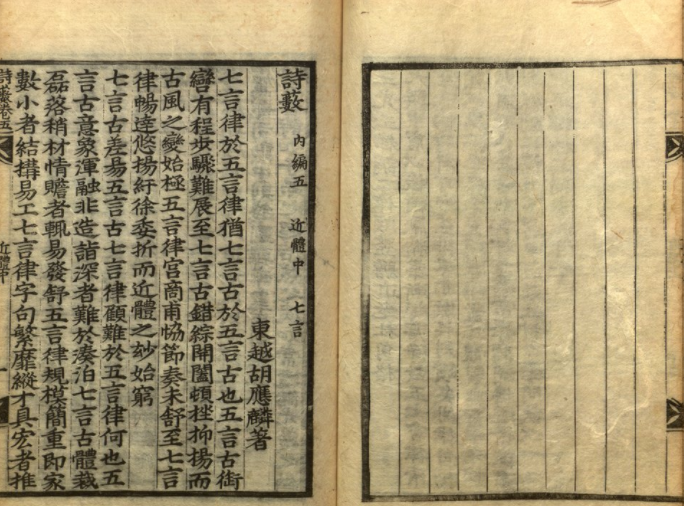 詩藪 内編五 近體中 七言
東越胡應麟著
七言律於五言律猶七言古於五言古也五言古銜
轡有程步驟難展至七言古錯綜開闔頓挫抑揚而
古風之變始極五言律宮商甫恊節奏未舒至七言
律暢達悠揚紆徐委折而近體之玅始窮
七言古差易五言古七言律顧難於五言律何也五
言古意象渾融非造詣深者難於湊泊七言古體裁
磊落稍材情贍者輒易發舒五言律規模簡重即家
數小者結搆易工七言律字句繁靡縱才具宏者推
詩藪卷五 近體中 一